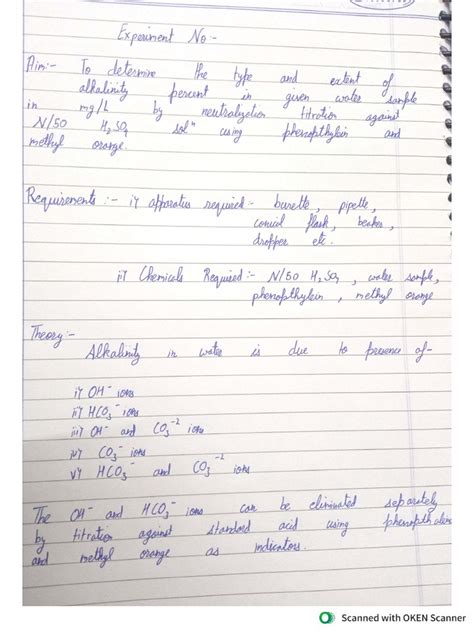 Experiment No :-
Aim:- To determine the type and extent of
alkalinity percent in given water sample
in mg/L by neutralization titration against
N/50 H2SO4 solⁿ using phenopthylein and
methyl orange.
Requirements :- i) apparatus required :- burette, pipette,
conical flask, beaker,
dropper etc.
ii) Chemicals Required :- N/50 H2SO4, water sample,
phenopthylein, methyl orange
Theory :-
Alkalinity in water is due to presence of -
i) OH⁻ ions
ii) HCO3⁻ ions
iii) OH⁻ and CO3⁻² ions
iv) CO3⁻ ions
v) HCO3⁻ and CO3⁻² ions
The OH⁻ and HCO3⁻ ions can be eliminated separately
by titration against standard acid using phenopthalene
and methyl orange as indicators.
Scanned with OKEN Scanner